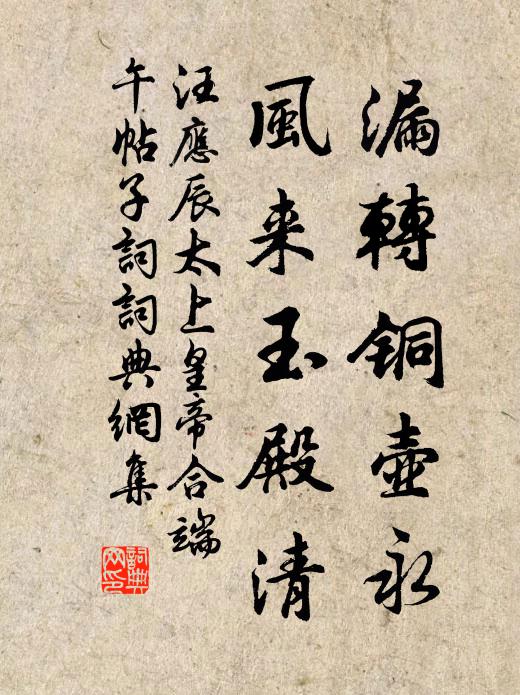 漏轉銅壺永
風来玉殿清
汪應辰太上皇帝合端
午帖子詞詞典網集
詞典网印